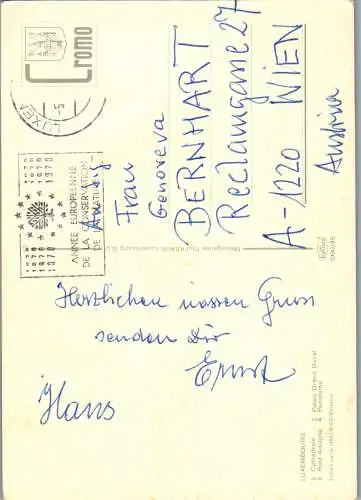 Cromo
LUXEM
-5
1970 1970
ANNEE EUROPEENNE
DE LA CONSERVATION
DE LA NATURE
An
Frau
Genoveva
BERNHART
Reclamgasse 27
A-1220 WIEN
Austria
Messageries Paul Kraus, Luxembourg G. D.
Herzlichen nassen Gruss
senden Dir
Ernst
Hans
LUXEMBOURG
1 Cathédrale 2 Palais Grand Ducal
3 Pont Adolphe 4 Panorama